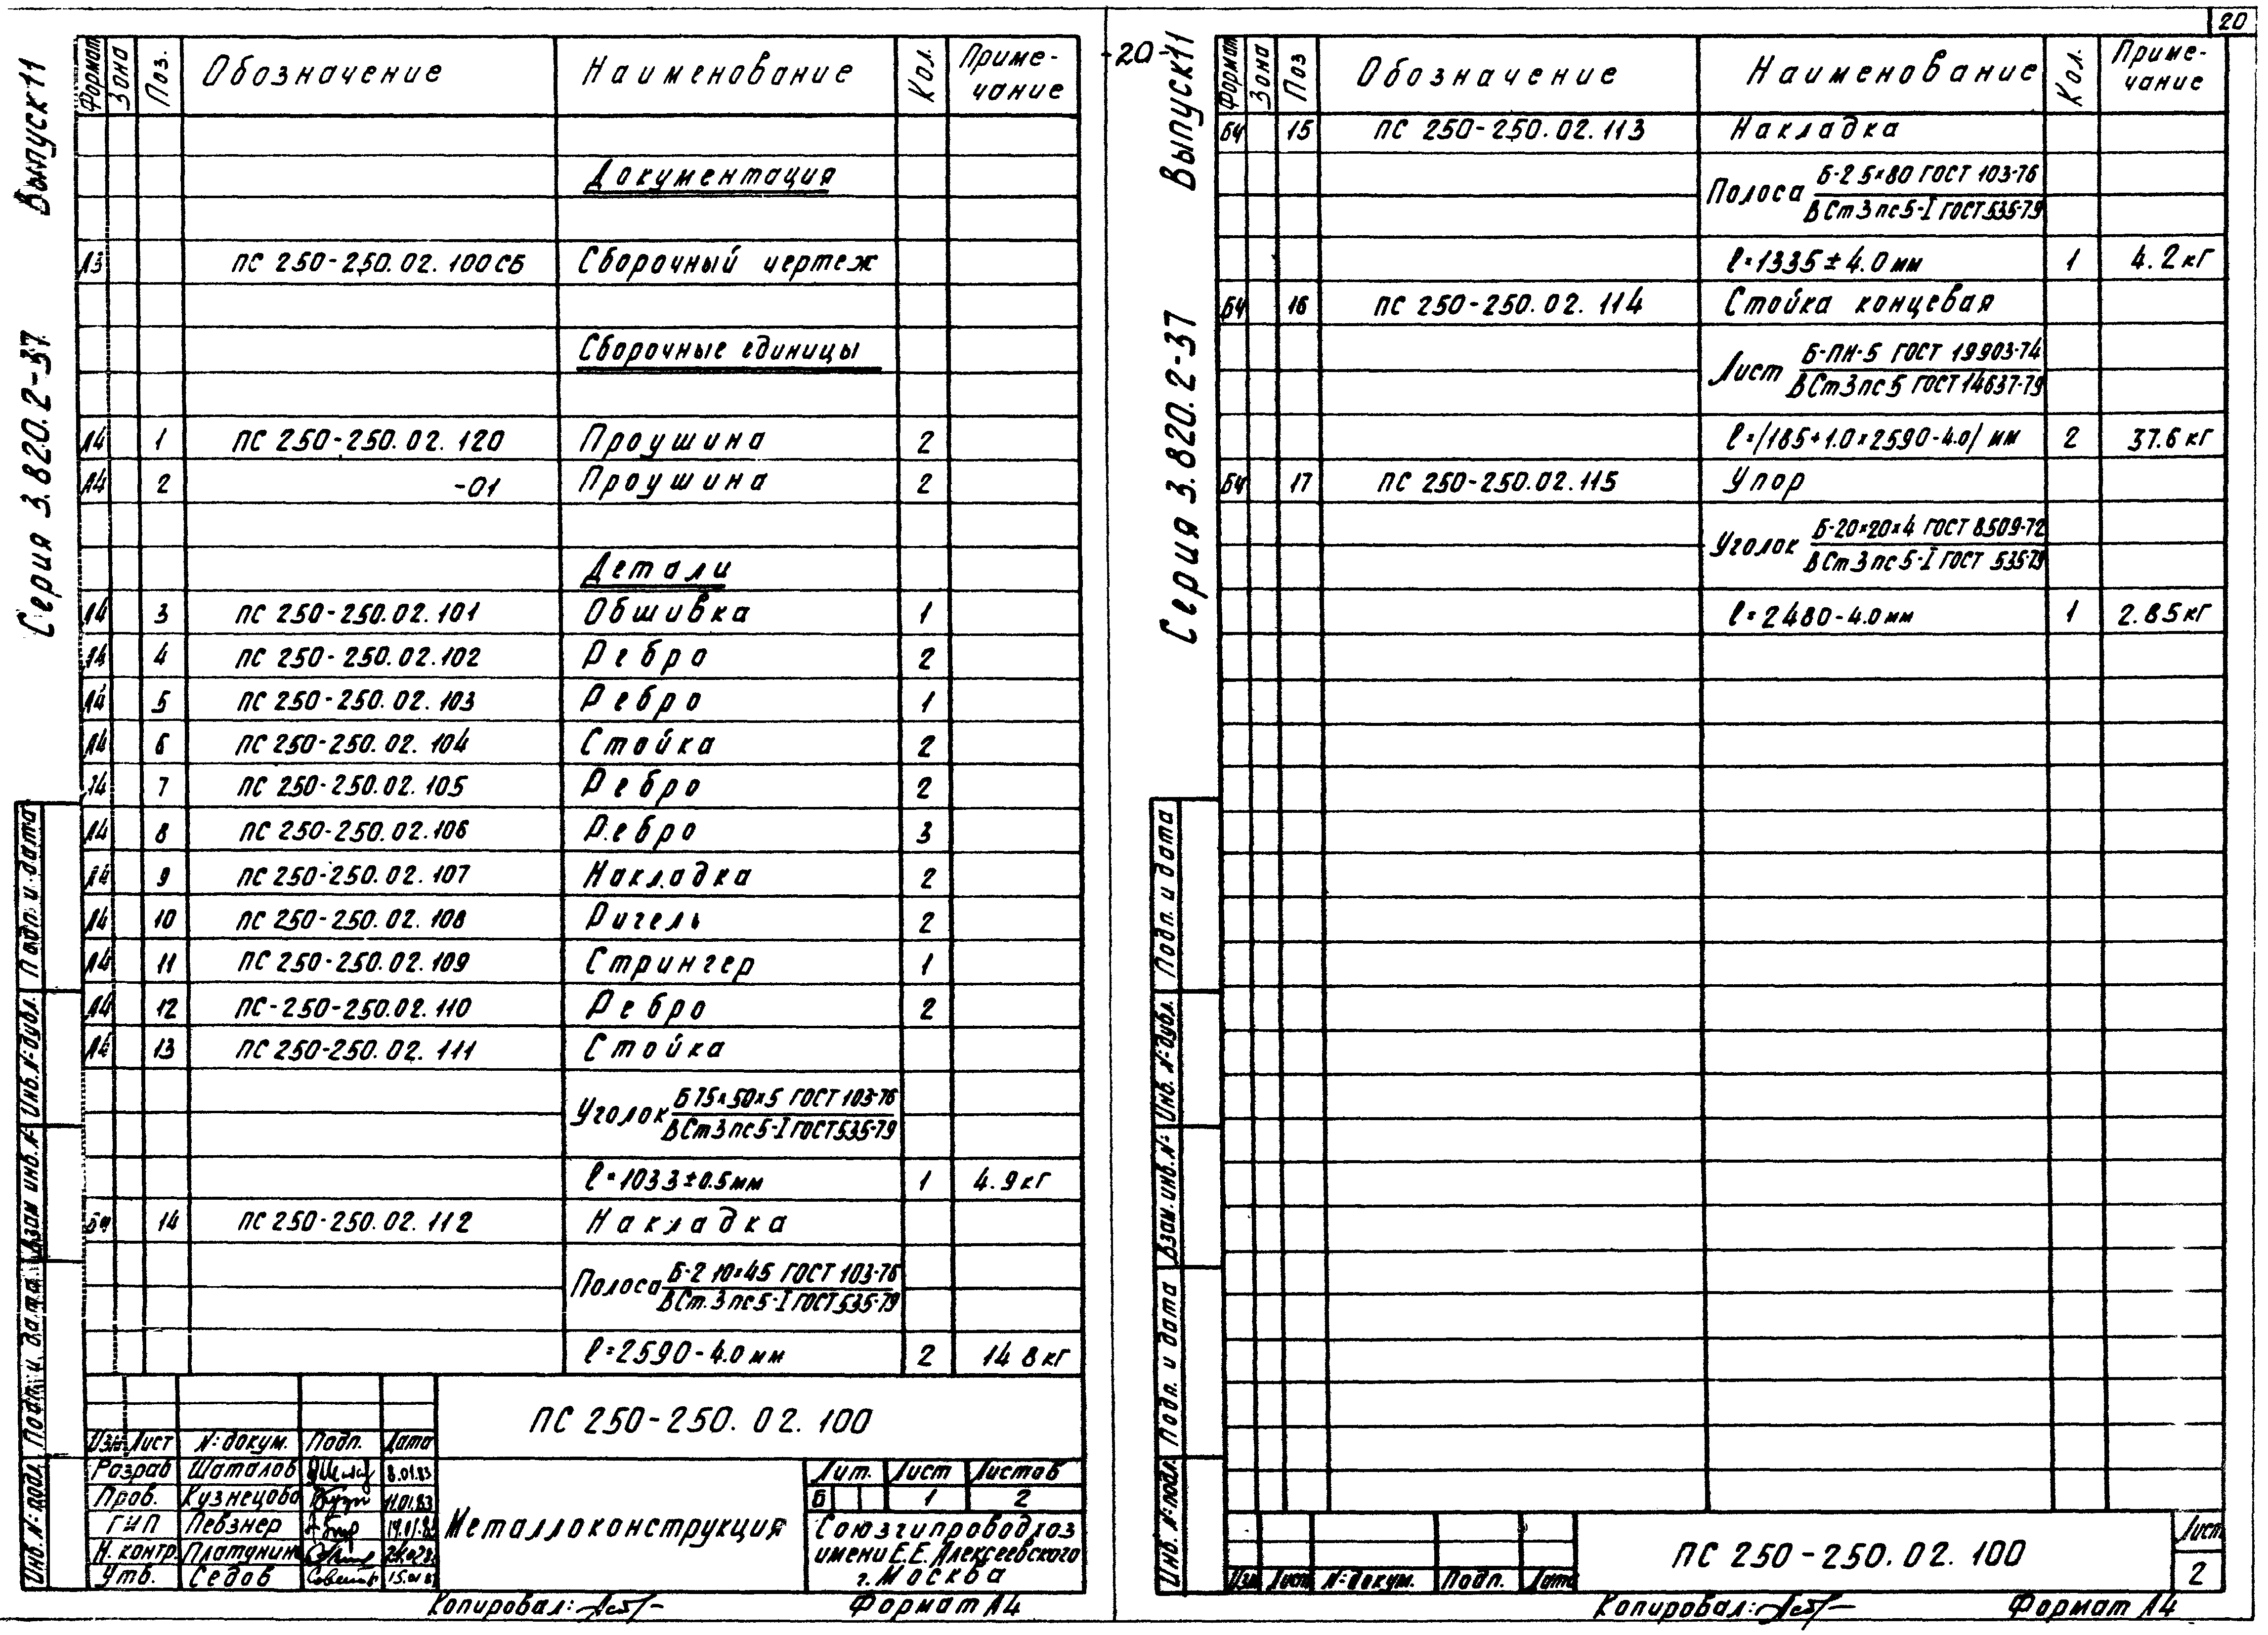 20
-20-
Выпуск 11
Серия 3.820.2-37
Формат Зона Поз. Обозначение Наименование Кол. Приме-
чание
Документация
А3 ПС 250-250.02.100СБ Сборочный чертеж
Сборочные единицы
А4 1 ПС 250-250.02.120 Проушина 2
А4 2 -01 Проушина 2
Детали
А4 3 ПС 250-250.02.101 Обшивка 1
А4 4 ПС 250-250.02.102 Ребро 2
А4 5 ПС 250-250.02.103 Ребро 1
А4 6 ПС 250-250.02.104 Стойка 2
А4 7 ПС 250-250.02.105 Ребро 2
А4 8 ПС 250-250.02.106 Ребро 3
А4 9 ПС 250-250.02.107 Накладка 2
А4 10 ПС 250-250.02.108 Ригель 2
А4 11 ПС 250-250.02.109 Стрингер 1
А4 12 ПС-250-250.02.110 Ребро 2
13 ПС 250-250.02.111 Стойка
Уголок Б 75×50×5 ГОСТ 103-76
В Ст 3 пс 5-I ГОСТ 535-79
ℓ=1033±0.5мм 1 4.9кг
БЧ 14 ПС 250-250.02.112 Накладка
Полоса Б-2 10×45 ГОСТ 103-76
В Ст. 3 пс 5-I ГОСТ 535-79
ℓ=2590-4.0 мм 2 14 8 кг
Инв. №подл. Подп. и дата Взам инв. № Инв. №дубл. Подп. и дата
ПС 250-250.02.100
Изм Лист №докум. Подп. Дата
Разраб Шаталов 8.01.83
Пров. Кузнецова 11.01.83
ГИП Певзнер
Н. контр Платунин
Утв. Седов
Металлоконструкция
Лит. Лист Листов
Б 1 2
Союзгипроводхоз
имени Е.Е. Алексеевского
г. Москва
Копировал: Формат А4
Выпуск 11
Серия 3.820.2-37
Формат Зона Поз Обозначение Наименование Кол. Приме-
чание
БЧ 15 ПС 250-250.02.113 Накладка
Полоса Б-2 5×80 ГОСТ 103-76
В Ст 3 пс 5-I ГОСТ 535-79
ℓ=1335±4.0 мм 1 4.2 кг
БЧ 16 ПС 250-250.02.114 Стойка концевая
Лист Б-ПН-5 ГОСТ 19903-74
В Ст 3 пс 5 ГОСТ 14637-79
ℓ=/185+1.0×2590-4.0/ мм 2 37.6 кг
БЧ 17 ПС 250-250.02.115 Упор
Уголок Б-20×20×4 ГОСТ 8509-72
В Ст 3 пс 5-I ГОСТ 535-79
ℓ=2480-4.0 мм 1 2.85 кг
Инв. №подл. Подп. и дата Взам. инв. № Инв. №дубл. Подп. и дата
Изм Лист №докум. Подп. Дата
ПС 250-250.02.100
Лист
2
Копировал: Формат А4